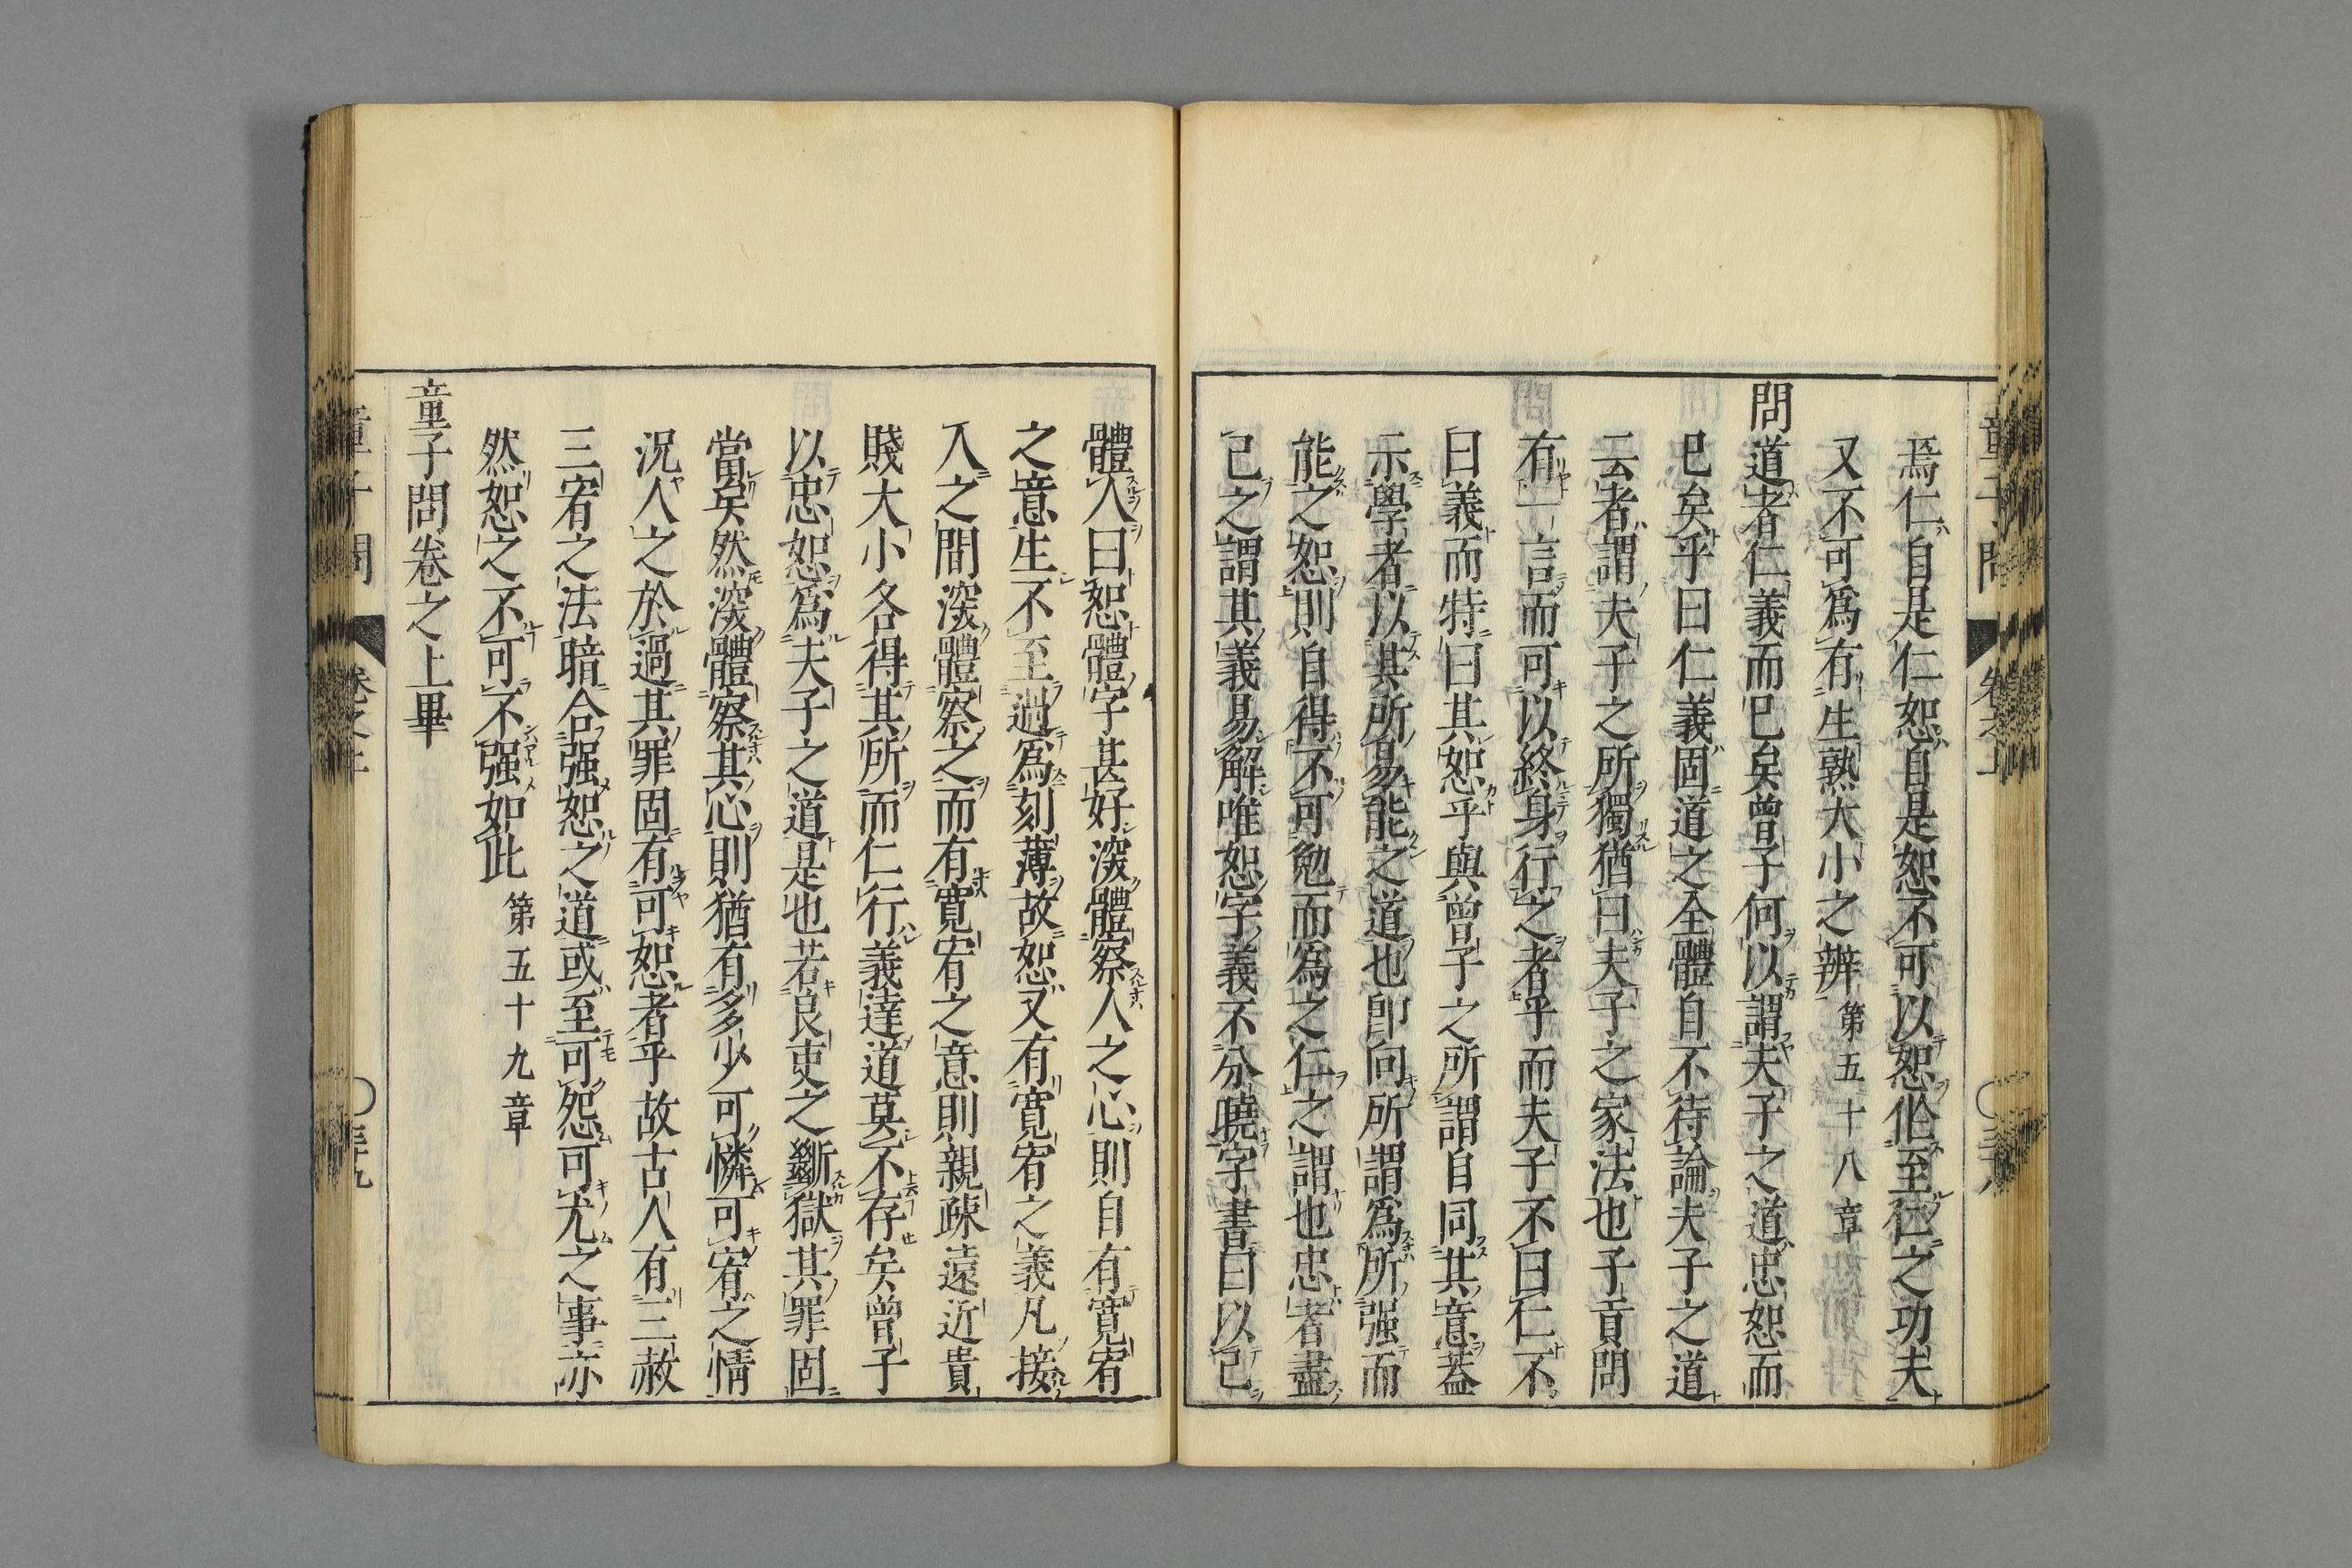 焉仁自是仁恕自是恕不可以恕俗至仁之功夫
又不可爲有生熟大小之辨 第五十八章
問道者仁義而已矣曾子何以謂夫子之道忠恕而
已矣乎曰仁義固道之全體自不待論夫子之道
云者謂夫子之所獨猶曰夫子之家法也子貢問
有一言而可以終身行之者乎而夫子不曰仁不
曰義而特曰其恕乎與曾子之所謂自同其意蓋
示學者以其所易能之道也卽向所謂爲所强而
能之恕則自得不可勉而為之仁之謂也忠者盡
己之謂其義易解唯恕字義不分曉字書曰以己
體人曰恕體字甚好深體察人之心則自有寬宥
之意生不至過爲刻薄故恕又有寬宥之義凡接
人之間深體察之而有寬宥之意則親疎遠近貴
賤大小各得其所而仁行義達道莫不存矣曾子
以忠恕爲夫子之道是也若良吏之斷獄其罪固
當矣然深體察其心則猶有多少可憐可宥之情
況人之於過其罪固有可恕者乎故古人有三赦
三宥之法暗合强恕之道或至可怨可尤之事亦
然恕之不可不强如此 第五十九章
童子問卷之上畢